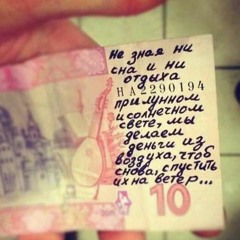 Не зная ни
сна и ни
отдыха
НА2290194
при лунном
и солнечном
свете, мы
делаем
деньги из
воздуха, чтоб
снова, спустить
их на ветер...
10